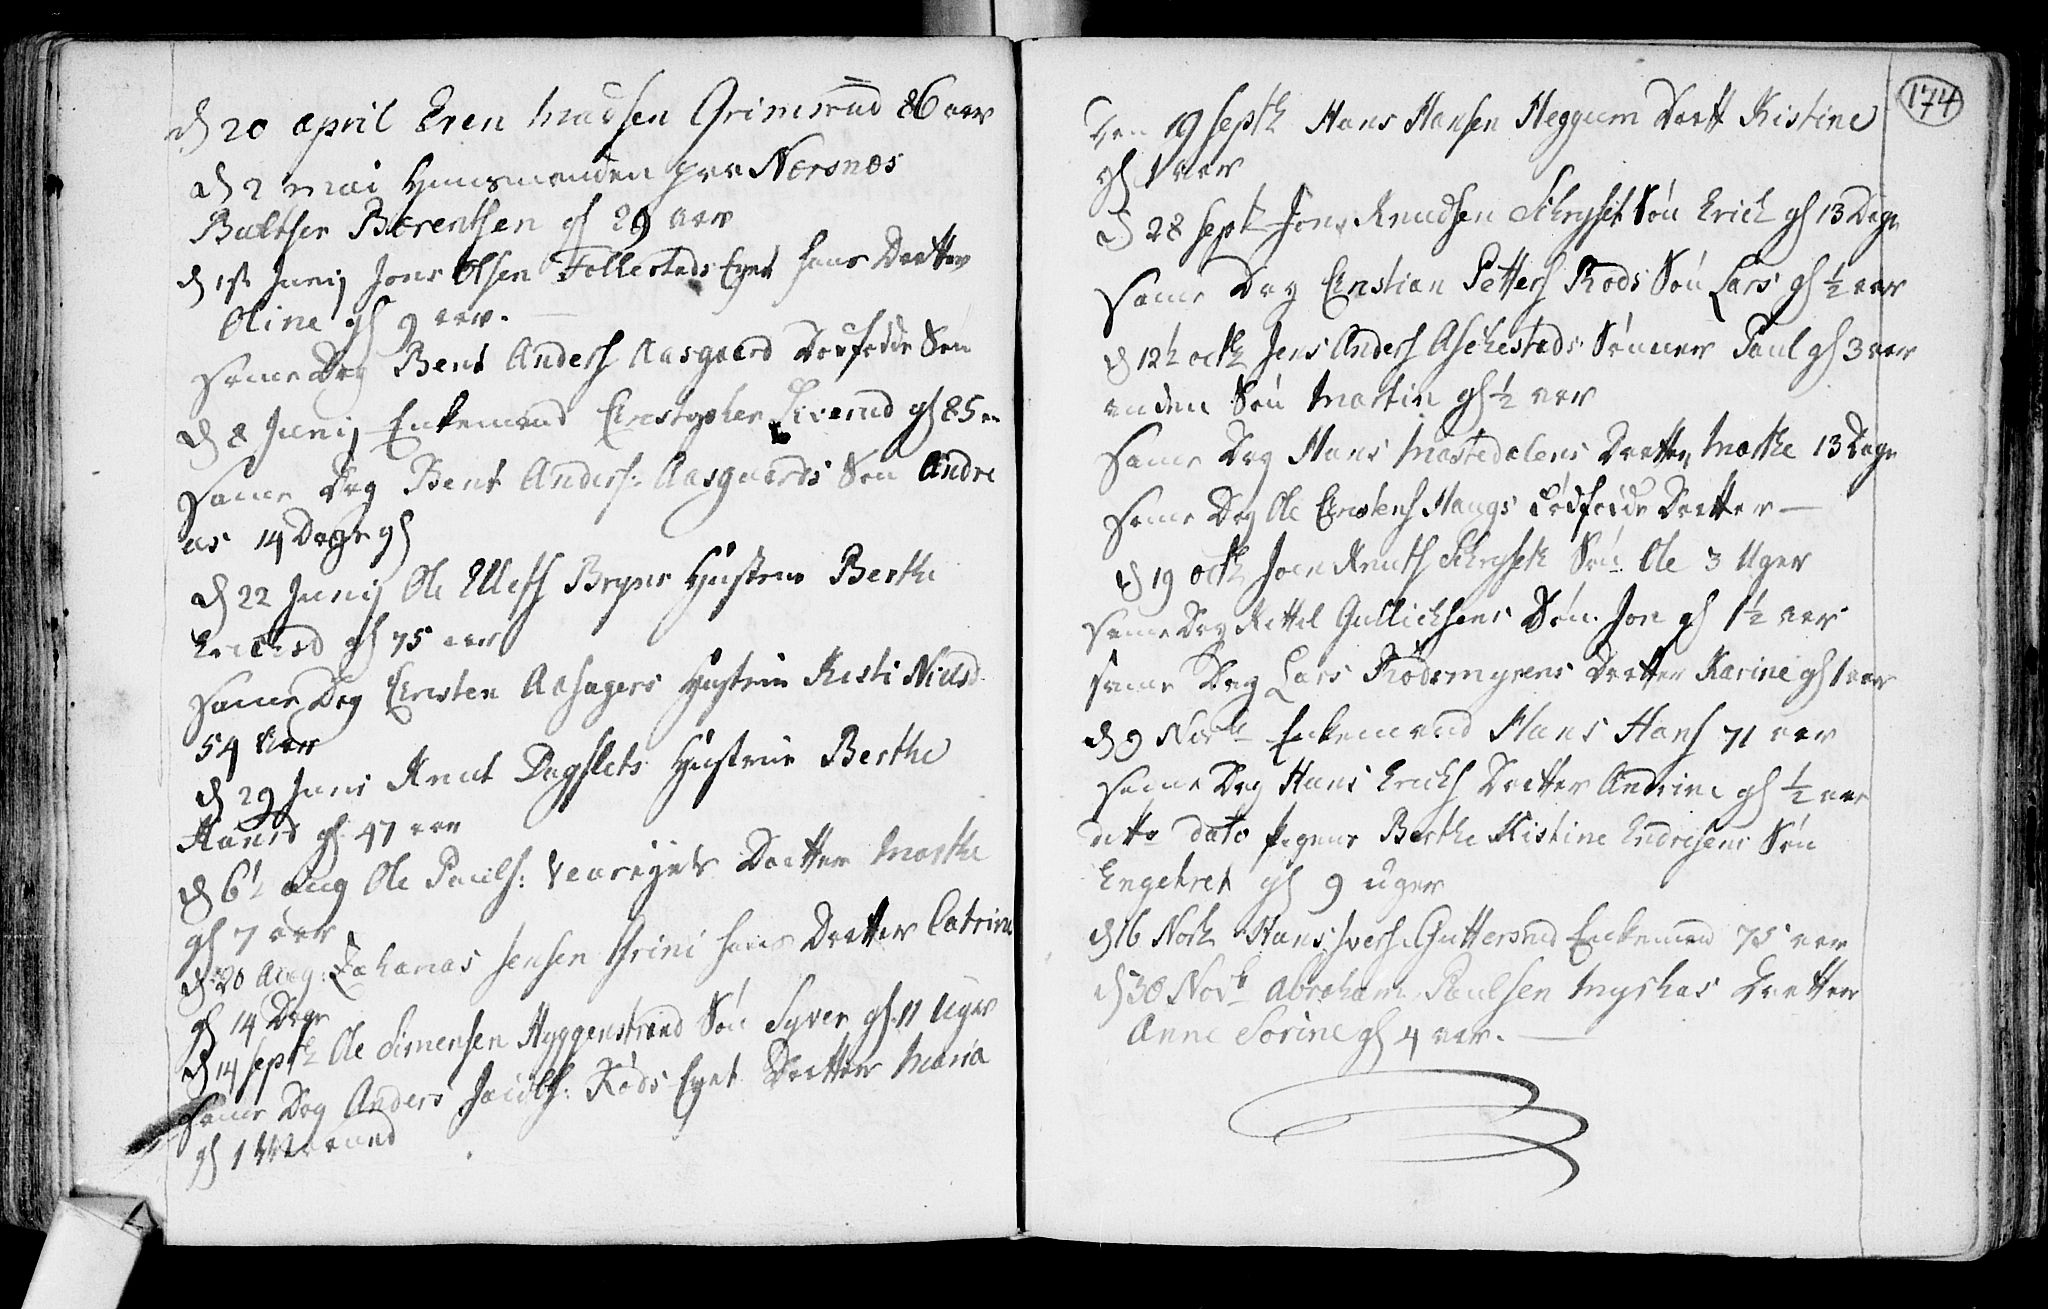 d 20 april Even Madsen Grimsrud 86 aar
d 2 mai Huusmanden fra Nærsnæs
Baltser Bærentsen gl 29 aar
d 1st Junij Jons Olsen Follestads Eyet hans Daatter
Oline gl 9 aar.
samme Dag Bent Anders Aasgaard Dødfødde Søn
d 8 Junij Enkemand Cristopher gl 85
samme Dag Bent Anders: Aasgaards Søn Andre
as 14 Dage gl
d 22 Junij Ole Ellefs Hustrue Berthe
Ericksd gl 75 aar
samme Dag Cristen Aasagers Hustrue Kisti Nielsd
54 Aar
d 29 Juni Knut Dagslets Hustrue Berthe
Hansd gl 47 aar
d 6t aug Ole Pauls: Daatter Marthe
gl 7 aar
d 20 Aug: Zakarias Jensen Grini hans Daatter Catrine
gl 14 Dage
d 14 septb Ole Simensen Hyggenstrand Søn Syver gl 11 Uger
samme Dag Anders Jacobs: Røds Eyet Daatter Maria
gl 1 Maaned
174
Den 19 septb Hans Hansen Heggum Daatt Kistine
gl 1 aar
d 28 septb Jons Knudsen Søn Erich gl 13 Dage
samme Dag Cristian Petters Røds Søn Lars gl ½ aar
d 12t octb Jens Anders Aschestads Sønner Paul gl 3 aar
anden Søn Martin gl ½ aar
samme Dag Hans Mastedalens Daatter Marthe 13 Dage
samme Dag Ole Cristens Haugs Dødfødde Daatter —
d 19 octb Joen Knuts Søn Ole 3 Uger
samme Dag Kettel Gullichsens Søn Jon gl 1½ aar
samme Dag Lars Rødsmyrens Daatter Karine gl 1 aar
d 9 Novb Enkemand Hans Hans 71 aar
samme Dag Hans Ericks Daatter Andrine gl ½ aar
ditto dato pigens Berthe Kistine Endresens Søn
Engebret gl 9 uger
d 16 Novb Hans Ivers: Guttersrud Enkemand 75 aar
d 30 Novb Abraham Paulsen Myhras Daatter
Anne Sorine gl 4 aar. —